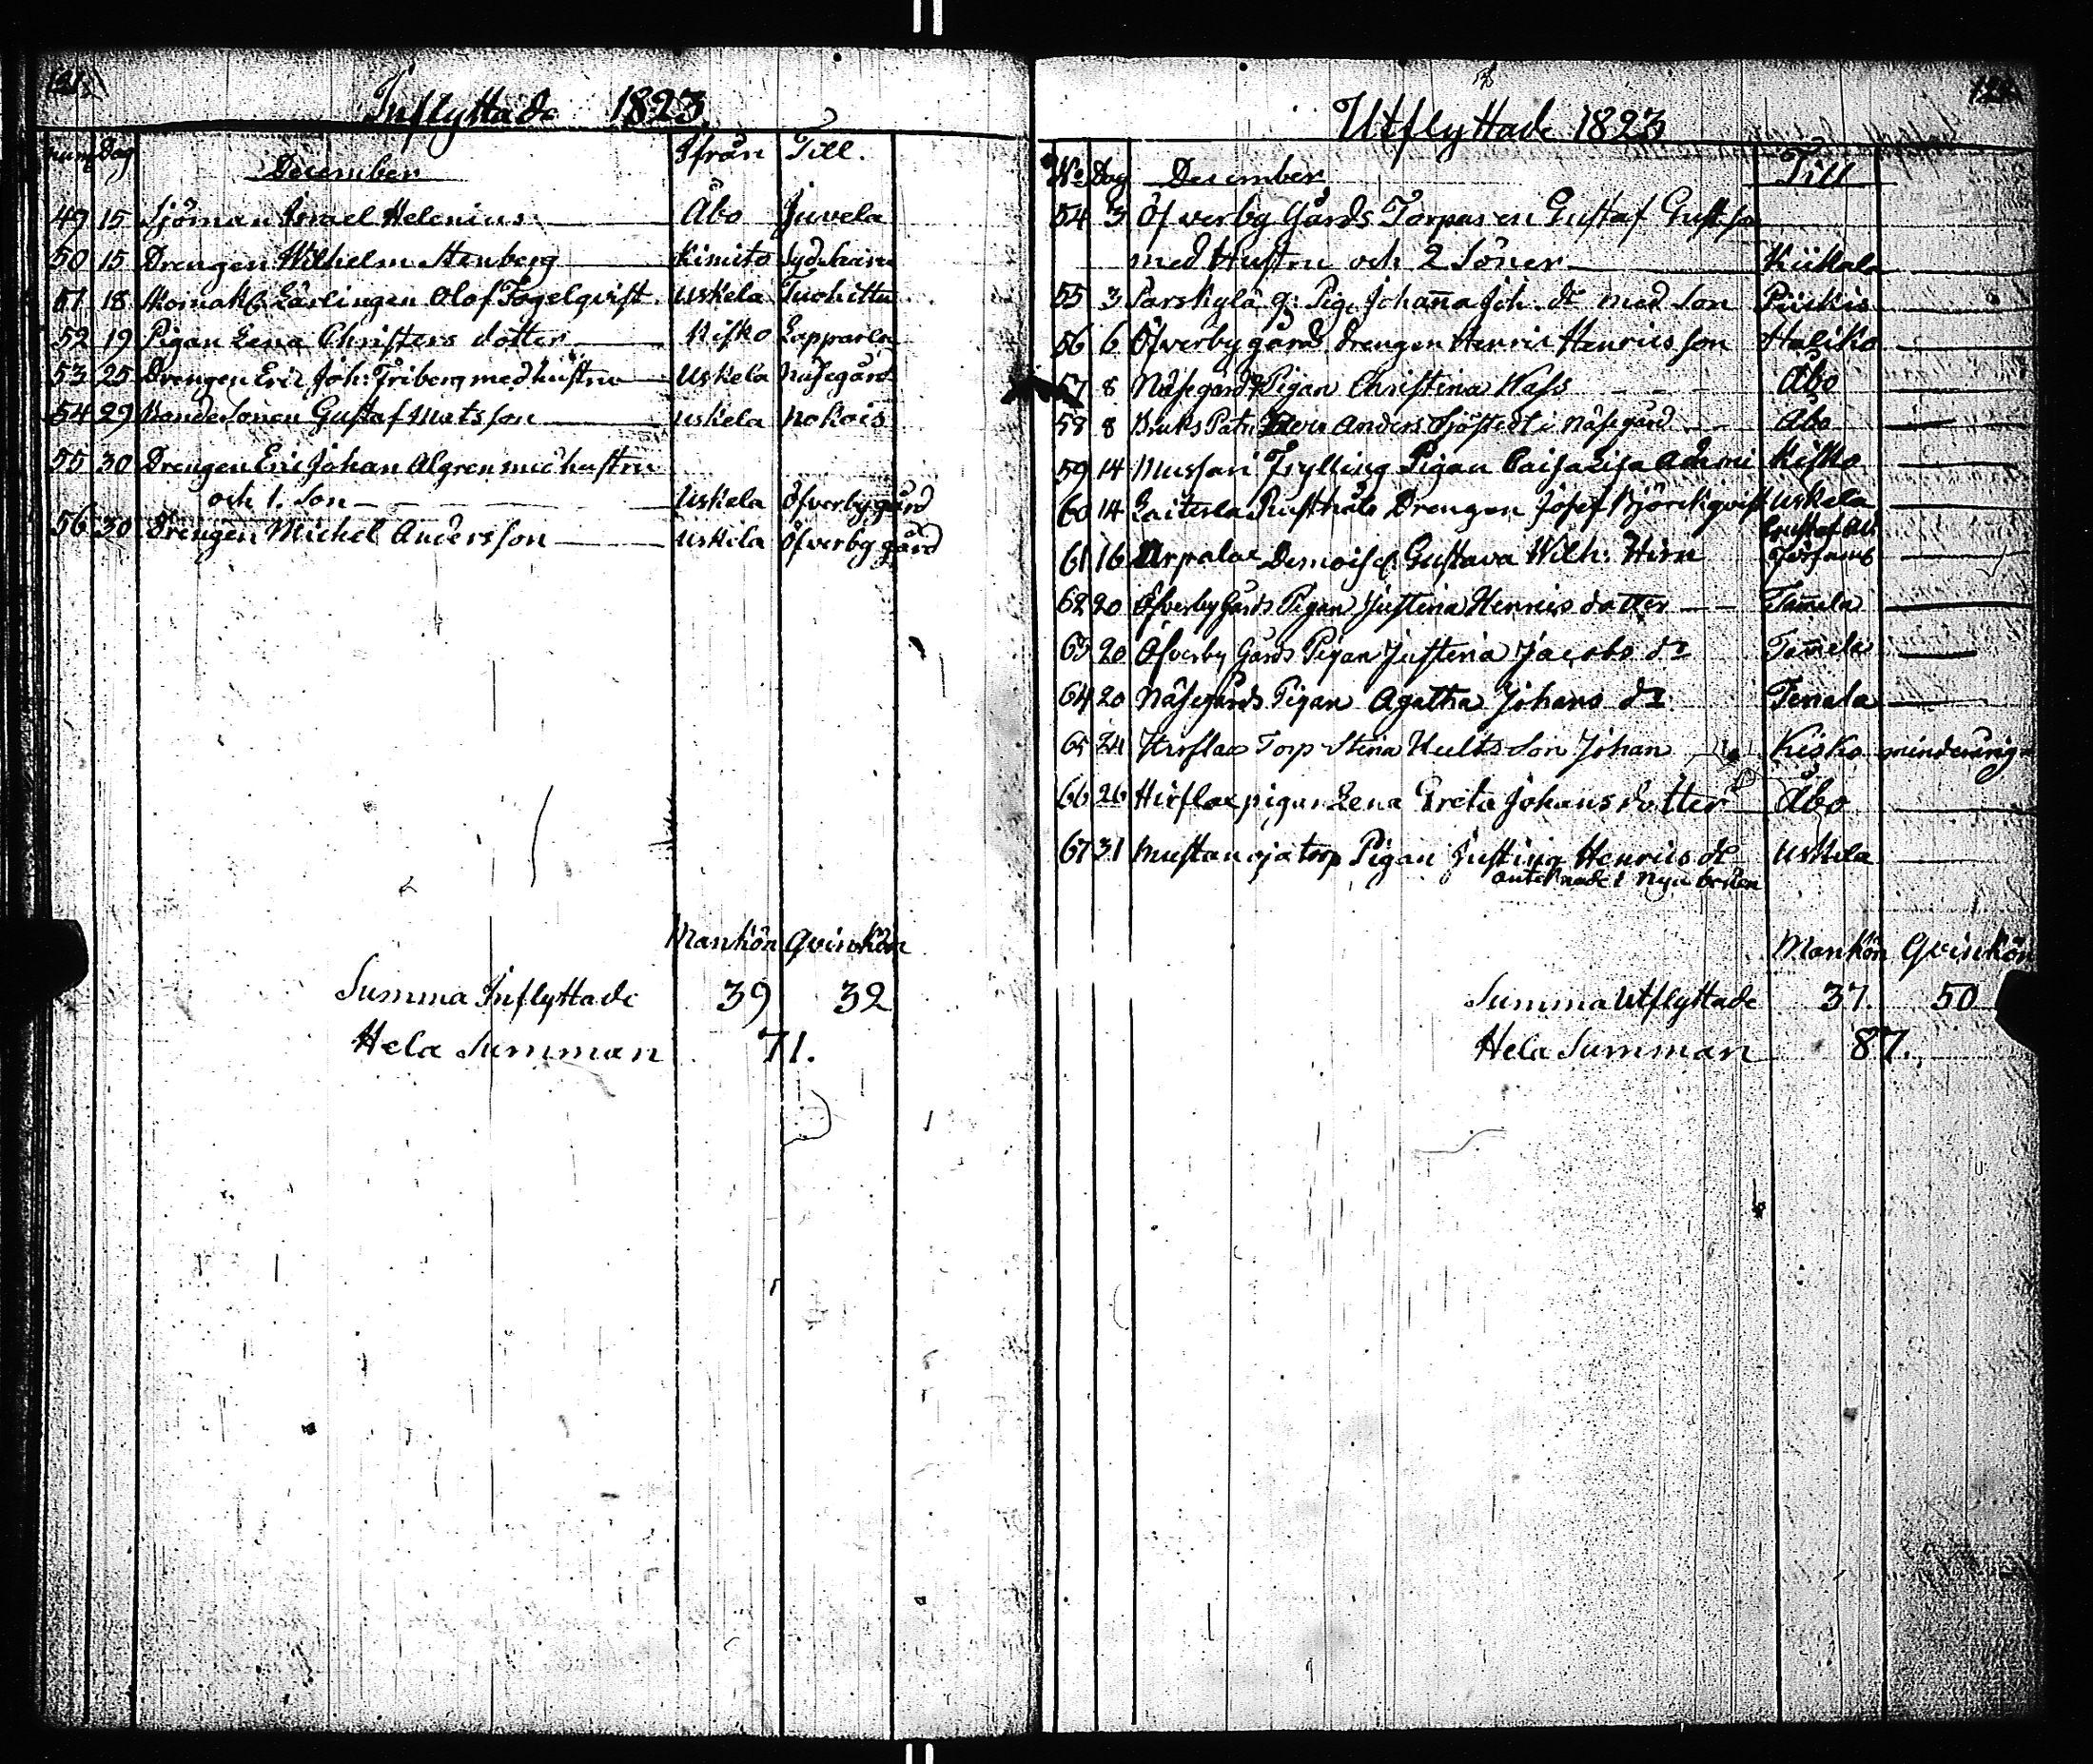 121
Inflyttade 1823.
num Dag December Ifrån Till.
49 15 Sjöman Israel Helenius Åbo Juvela
50 15 Drengen Wilhelm Stenberg Kimito
51 18 Lärlingen Olof Fogelqvist Uskela Tuohittu
52 19 Pigan Lena Christers dotter Kisko Lapparla
53 25 Drengen Eric Joh: Friberg med hustru Uskela Näsegård
54 29 Bondesonen Gustaf Matsson Uskela Nokois
55 30 Drengen Eric Johan Algren med hustru
och 1. Son Uskela Öfverby gård
56 30 Drengen Michel Andersson Uskela Öfverby gård
Mankön Qvinkön
Summa Inflyttade 39 32
Hela Summan 71.
122
Utflyttade 1823
No Dag December Till
54 3 Öfverby Gårds Torparen Gustaf Gustfson
med Hustru och 2 Söner Kiikala
55 3 Särskylä g: Pig. Johanna Joh. dr med Son Piikkis
56 6 Öfverby gårds drengen Henric Henrics son Haliko
57 8 Näsegårds Pigan Christina Hass Åbo
58 8 Bruks Patr Anders Sjöstedt i Näsegård Åbo
59 14 Mussari Pigan Caisa Lisa Kisko
60 14 Laiterla Rusthåls Drengen Josef Björckqvist Uskela
61 16 Arpalae Demoisel. Gustava Wilh: Hirn Gustaf Ad. Forssmb
62 20 Öfverby Gårds Pigan Justina Henrics dotter Tam̄ela
63 20 Öfverby Gårds Pigan Justina Jacobs dr Tam̄ela
64 20 Näsegårds Pigan Agatha Johans dr Tenala
65 24 Torp Stina Hults Son Johan Kisko minderårig
66 26 Hirslae pigan Lena Greta Johans dotter Åbo
67 31 Mustanoja torp Pigan Justina Henrics dr Uskela
antecknade i nya boken
Mankön Qvinkön
Summa Utflyttade 37. 50
Hela Summan 87.